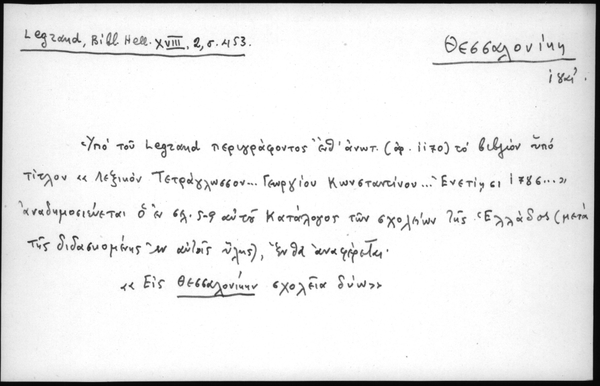 Legrand, Bibl. Hell. XVIII. 2, σ. 453.
Θεσσαλονίκη
ιηʹ.
Ὑπό τοῦ Legrand περιγράφοντος ἔνθ' ἀνωτ. (ἀρ. 1170) τό βιβλίον ὑπό
τίτλον « Λεξικόν Τετράγλωσσον... Γεωργίου Κωνσταντίνου... Ἐνετίῃσι 1786... »
ἀναδημοσιεύεται ὁ ἐν σελ. 5-9 αὐτοῦ Κατάλογος τῶν σχολείων τῆς Ἑλλάδος (μετά
τῆς διδασκομένης ἐν αὐταῖς ὕλης), ἔνθα ἀναφέρεται·
« Εἰς Θεσσαλονίκην σχολεῖα δύω »